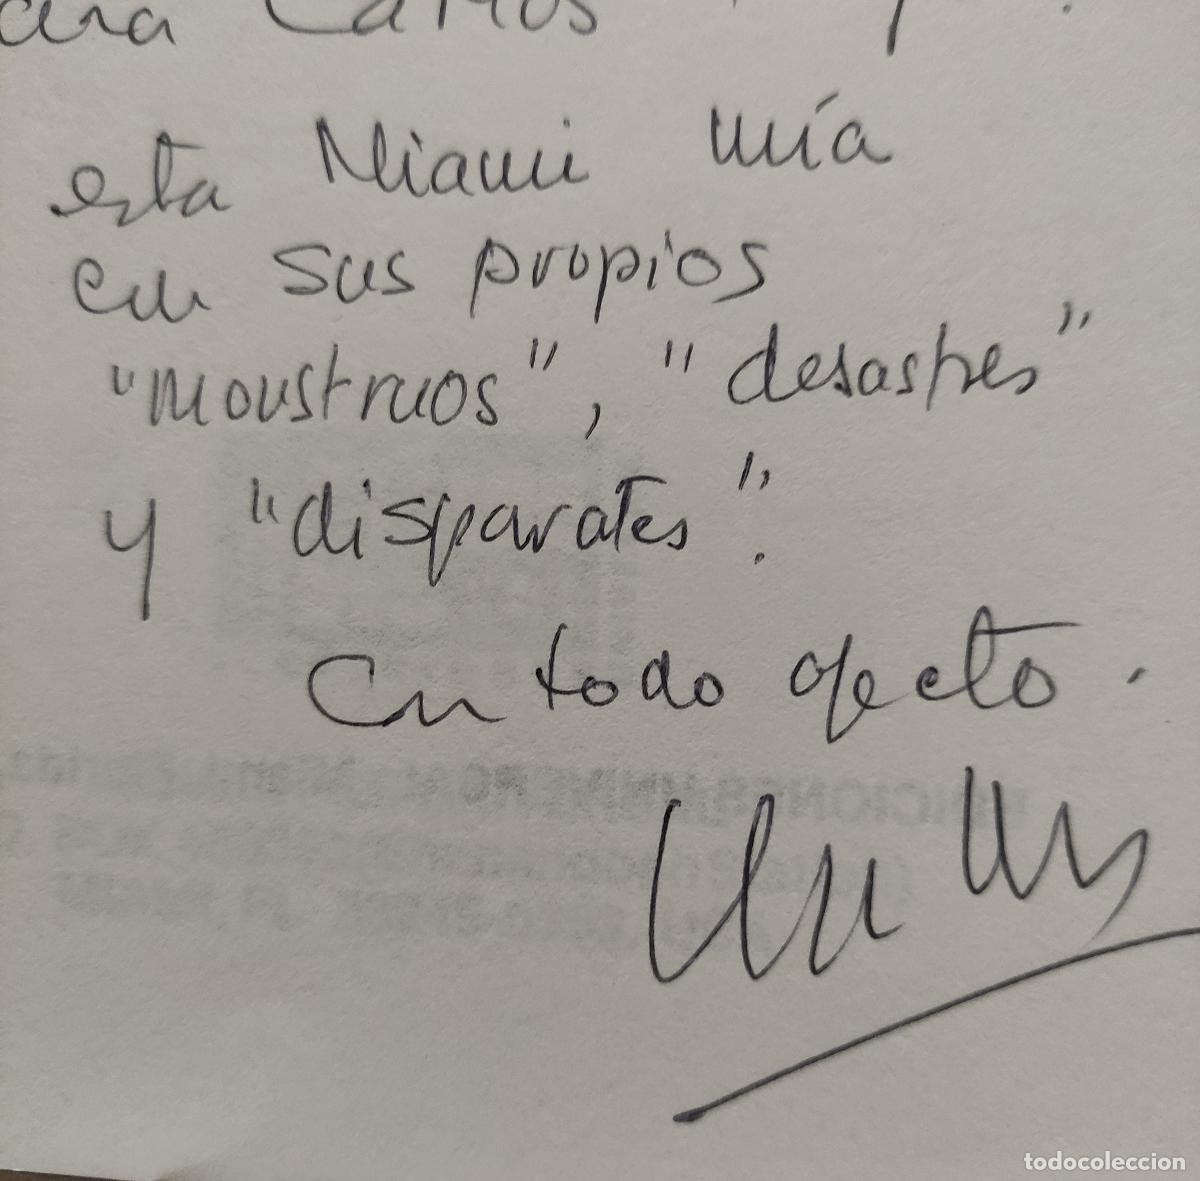 Para Carlos
esta Miami mía
en sus propios
"monstruos", "desastres"
y "disparates".
Con todo afecto.
todocoleccion